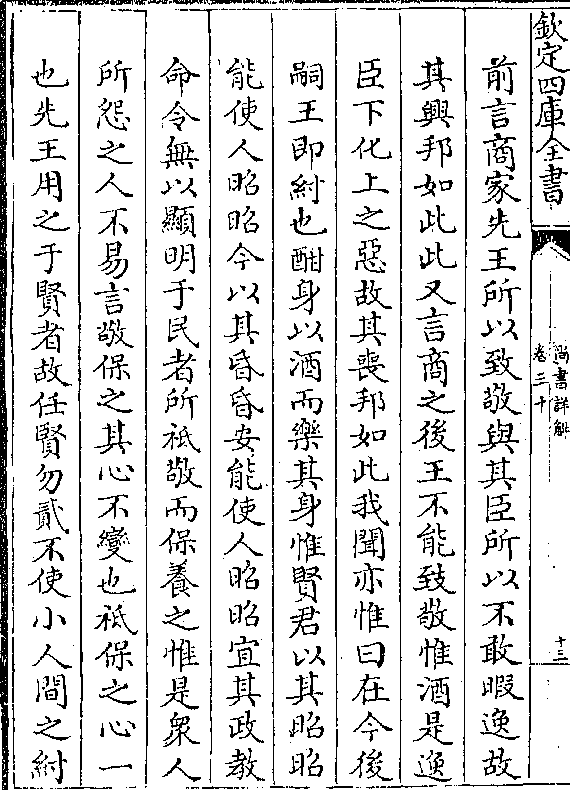 欽定四庫全書
尚書詳解
卷三十
十三
前言商家先王所以致敬與其臣所以不敢暇逸故
其興邦如此此又言商之後王不能致敬惟酒是逸
臣下化上之惡故其喪邦如此我聞亦惟曰在今後
嗣王即紂也酣身以酒而樂其身惟賢君以其昭昭
能使人昭昭今以其昏昏安能使人昭昭宜其政教
命令無以顯明于民者所祗敬而保養之惟是衆人
所怨之人不易言敬保之其心不變也祗保之心一
也先王用之于賢者故任賢勿貳不使小人間之紂